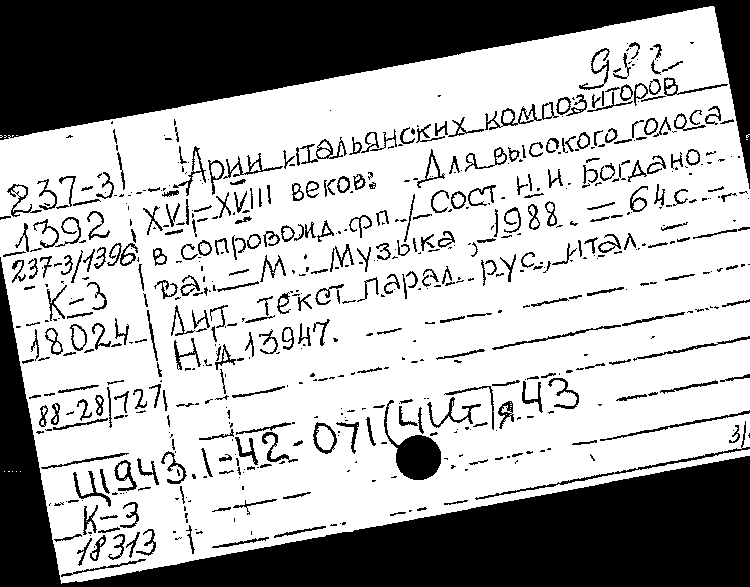 982
Арии итальянских композиторов
XVI-XVIII веков: Для высокого голоса
в сопровожд. фп. / Сост. Н.Н. Богдано-
ва. – М.: Музыка, 1988. – 64 с. –
Лит. текст парал. рус., итал. –
Н.д 13947.
237-3
1392
237-3/1396
К-3
18024
88-28/727
Щ943.1-42-071(4Ит)я43
К-3
18313